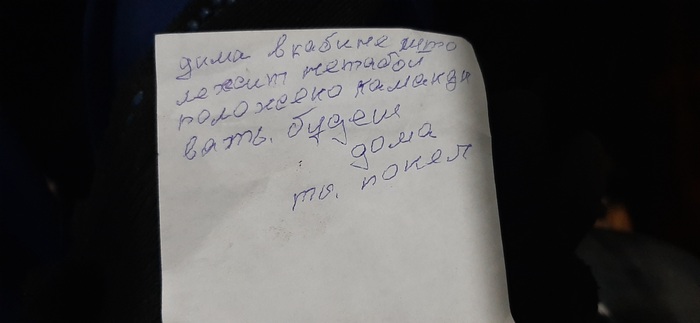 дима вкабине што
лежит нетабой
положено каманди
вать. будеш
дома
ты. понел